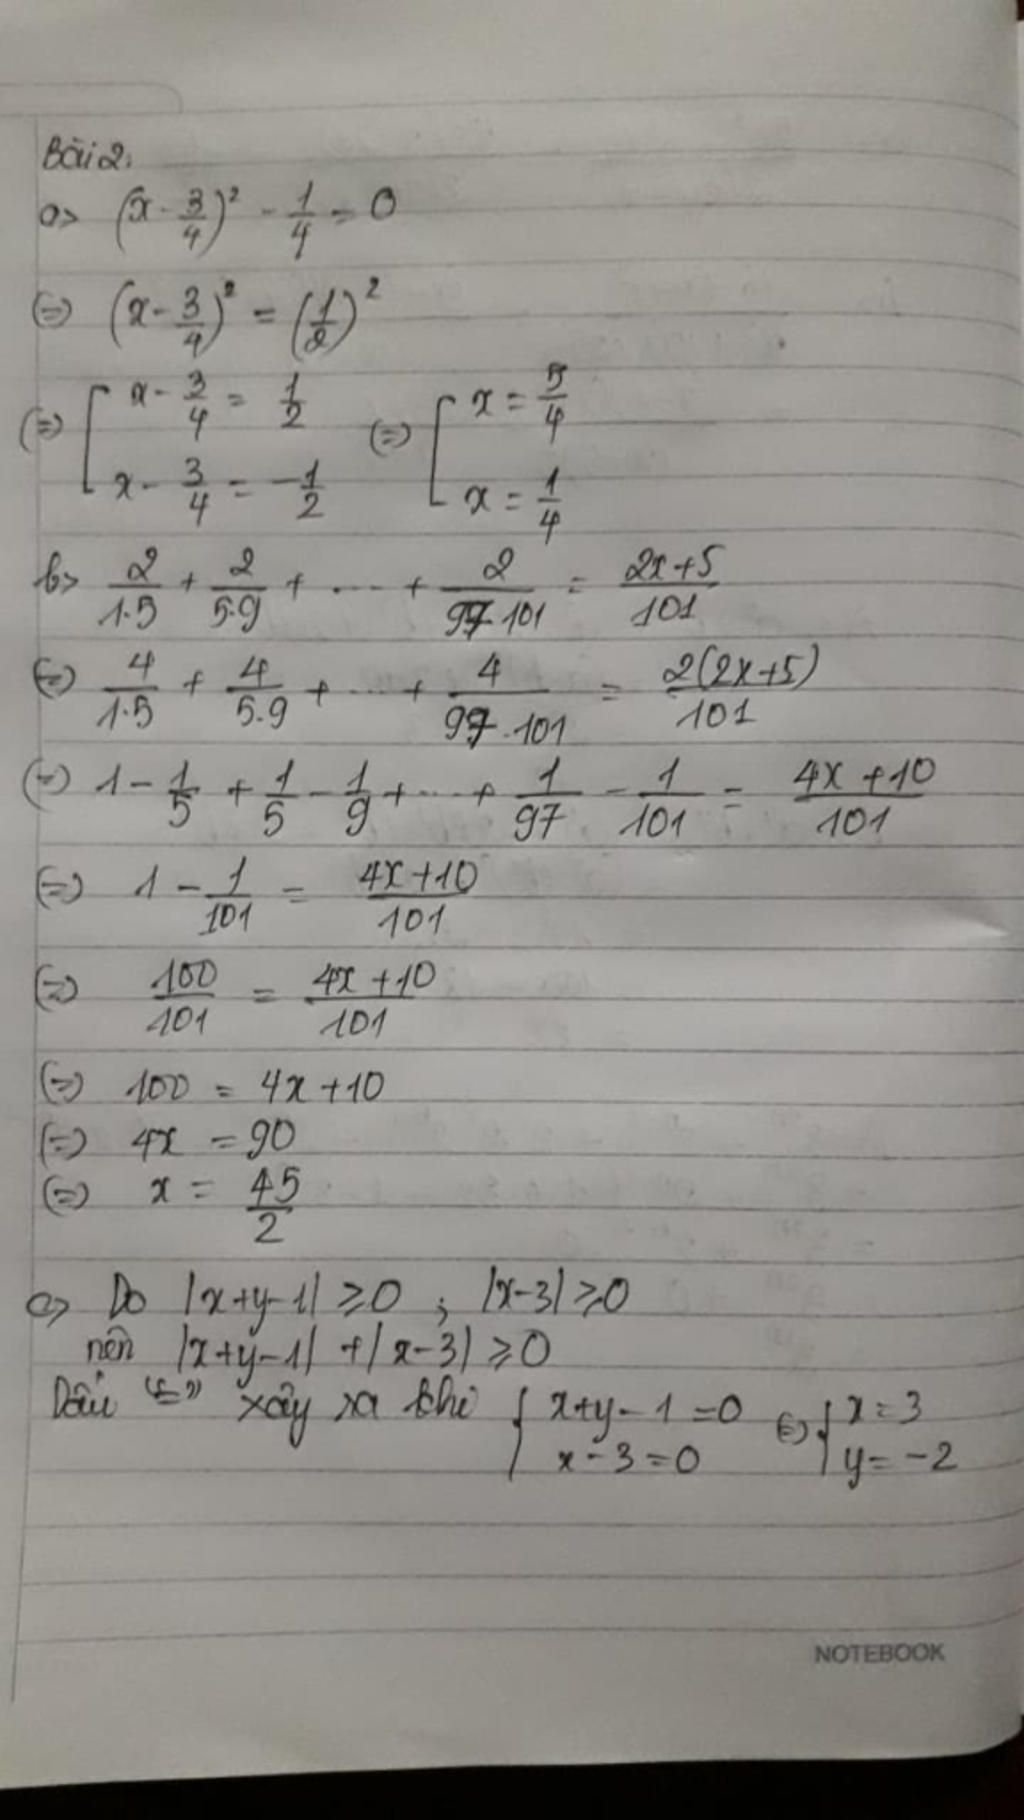 Bài 2:
a> (x - 3/4)² - 1/4 = 0
(=) (x - 3/4)² = (1/2)²
(=) [ x - 3/4 = 1/2 (=) [ x = 5/4
x - 3/4 = -1/2 x = 1/4
b> 2/1.5 + 2/5.9 + .... + 2/97.101 = 2x+5/101
(=) 4/1.5 + 4/5.9 + ... + 4/97.101 = 2(2x+5)/101
(=) 1 - 1/5 + 1/5 - 1/9 + ... + 1/97 - 1/101 = 4x+10/101
(=) 1 - 1/101 = 4x+10/101
(=) 100/101 = 4x+10/101
(=) 100 = 4x+10
(=) 4x = 90
(=) x = 45/2
c> Do |x+y-1| ≥ 0 ; |x-3| ≥ 0
nên |x+y-1| + |x-3| ≥ 0
Dấu "=" xảy ra khi { x+y-1 = 0 (=) { x = 3
x-3 = 0 y = -2
NOTEBOOK